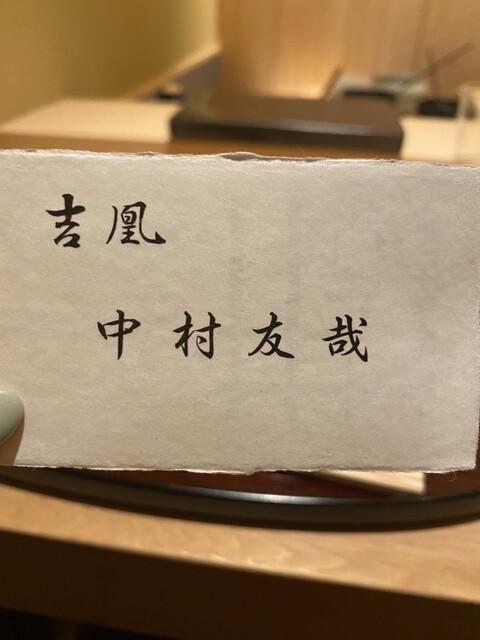 吉凰
中村友哉